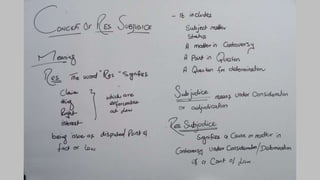 Concept Of Res Subjudice
Meaning
Res The word "Res" Signifies
Claim
thing
Right
interest
which are
enforceable
at Law
being issue as disputed Point of
fact or law
- It includes
Subject matter
Status
A matter in Controversy
A Point in Question
A Question for determination
Subjudice means Under Consideration
or adjudication
Res Subjudice
Signifies a Cause or matter in
Controversy under Consideration/Determination
of a Court of Law.